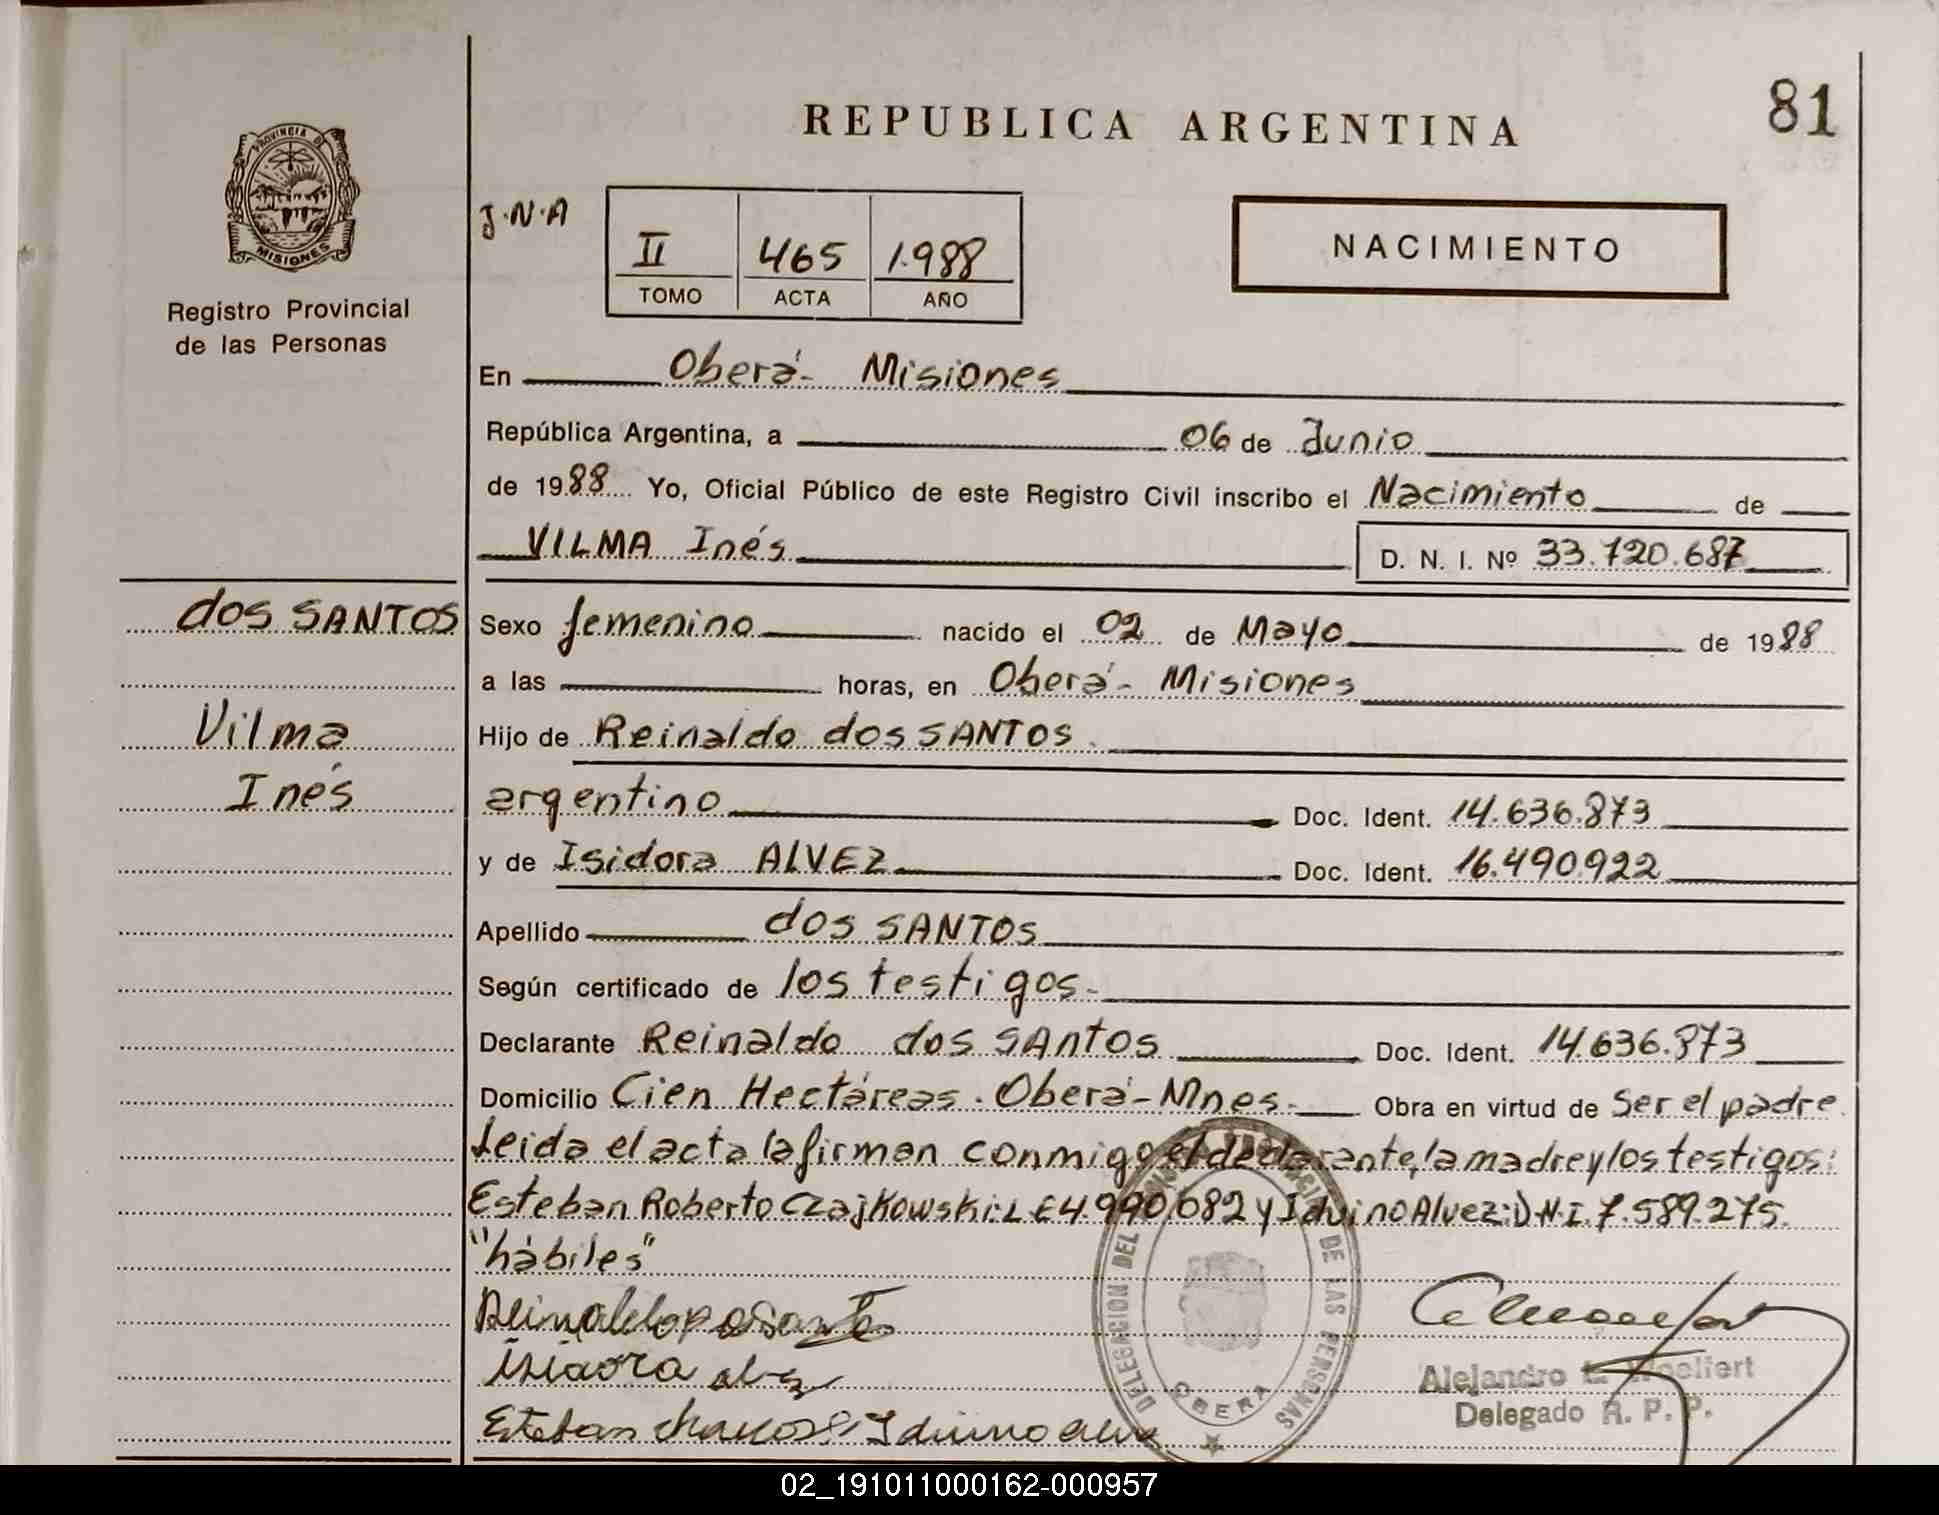 REPUBLICA ARGENTINA
81
PROVINCIA DE
MISIONES
Registro Provincial
de las Personas
J.N.A
II 465 1.988
TOMO ACTA AÑO
NACIMIENTO
En Oberá- Misiones
República Argentina, a 06 de Junio
de 1988 Yo, Oficial Público de este Registro Civil inscribo el Nacimiento de
VILMA Inés D. N. I. Nº 33.720.687
dos SANTOS
Vilma
Inés
Sexo femenino nacido el 02 de Mayo de 1988
a las horas, en Oberá- Misiones
Hijo de Reinaldo dos SANTOS
argentino Doc. Ident. 14.636.873
y de Isidora ALVEZ Doc. Ident. 16.490.922
Apellido dos SANTOS
Según certificado de los testigos-
Declarante Reinaldo dos SAntos Doc. Ident. 14.636.873
Domicilio Cien Hectáreas. Oberá-Mnes- Obra en virtud de Ser el padre
Leida el acta la firman conmigo el declarante, la madre y los testigos:
Esteban Roberto Czajkowski: L E 4.990.682 y Iduino Alvez: D.N.I. 7.589.275
"hábiles"
Isidora
Esteban Iduino
DELEGACION DEL REGISTRO PROVINCIAL DE LAS PERSONAS
OBERA
Alejandro
Delegado R. P. P.
02_191011000162-000957